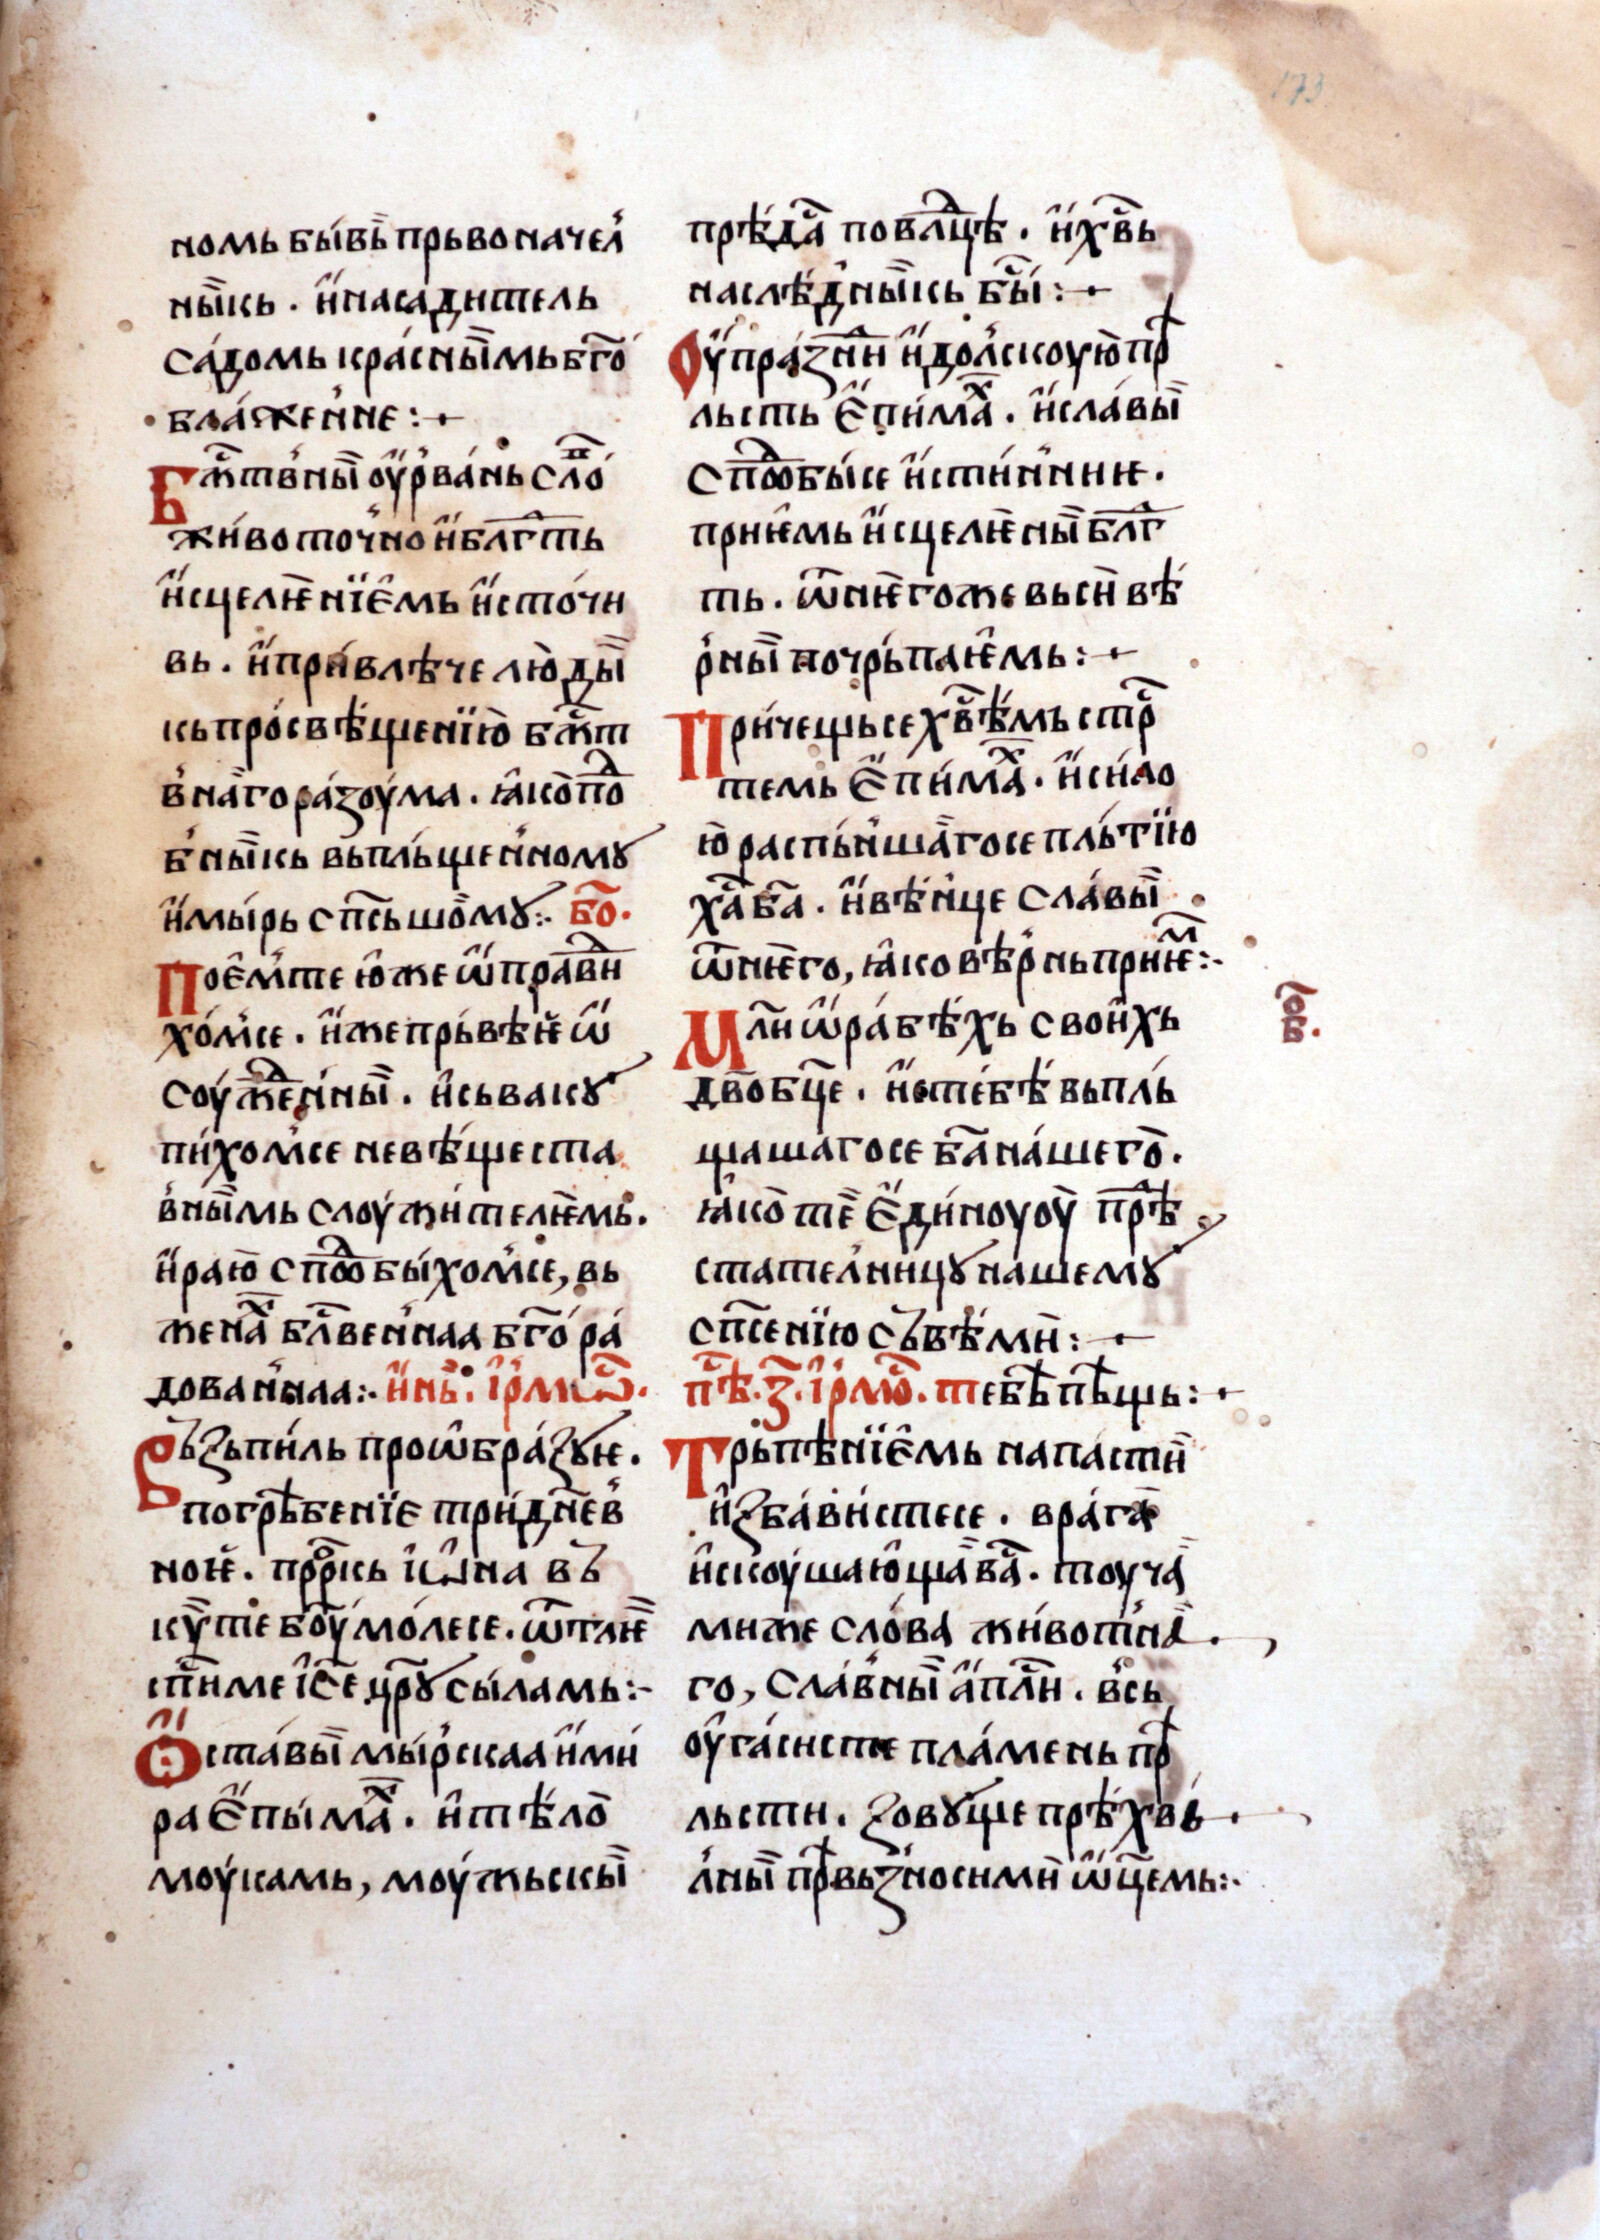 173
номь бы́вь прьвоначел҆
ны̏кь · и҆насадитель
са́домь кра́сны̏мь бг҃о́
блаже́н҆не :·
Бж҃тв҆ны̏ оу҆рва́нь сло҃́
жи́воточ҆но и҆ бл҃гть
и҆сцелѥ́нїѥ҆мь и҆сто́чи
вь · и҆при́влѣче лю̀ды̏
кь про́свѣ́щенїю̀ бж҃т
в҆на̏го ра́зоу́ма · ꙗ҆ко̀ по́д
б҆ны̏кь вьплъ́щен҆номꙋ
и҆мы́рь сп҃сьшо̏мꙋ :· Бо҃ ·
Поѥ҆м҆те ю҆же ѡ҆пра́вди
хо́м҆се · и҆же прь́вѣѥ ѡ҆
соуж҃ден҆ны̏ · и҆сьвакꙋ
пи́хом҆се невѣ́щеста
в҆ны̏мь слоужи́телѥ̏мь ·
и҆раю̀ сп҃добы́хом҆се, вь
жена́х бл҃вен҆наа бг҃о́ра́
дован҆наа :· и҆нь · і҆рмѡ҃с ·
Вьꙁьпи́ль проѡ҆бра́ꙁꙋѥ ·
погрѣ́бенїѥ три́дн҃ев҆
ноѥ · пр҃ркь і҆ѡ҆на въ
кꙋ̏те бг҃оу мо́лесе · ѿтлѥ̏
сп҃и ме і҆с҃е цр҃ꙋ сы́ламь :·
Ѻ҆ста́вы̏ мы́р҆скаа и҆ми́
ра ѥ҆пы́мах · и҆ тѣ́ло̀
моу́камь, моу́жьскы̏
прѣ́дас҃ по вл҃цѣ · и҆ хв҃ь
наслѣ́д҆ны̏кь бы҃ :·
Оу҆пра́ꙁни и҆дол҆скоую̀ прѣ
льсть ѥ҆пи́мах · и҆ сла́вы̏
сп҃добы́се и҆сти́н҆ниѥ ·
приѥ҆мь и҆сцелѥ́ны̏ бл҃г
ть · ѿнѥ̏гоже вьси̏ вѣ́
р҆ны̏ почрь́паѥ҆мь :·
При́чещьсе хв҃ѣ́мь стрс҃
темь ѥ҆пи́мах · и҆ си́ло
ю̀ распь́н҆ша̏госе плъ́тїю
ха҃ ба҃ · и҆вѣ́н҆це сла́вы̏
ѿнѥ̏го, ꙗ҆ко вѣ́р҆нь приѥм :·
Мл҃и ѡ҆ ра́бѣ́хь свои҆хь
дв҃о бц҃е · и҆с тебѣ́ вьплъ
щашагосе ба҃ на́шего̀ ·
ꙗ҆ко̀ те̏ ѥ҆ди́ноу оу҆ прѣ҃д
стател҆ницꙋ нашемꙋ
сп҃сенїю съвѣ́ми̏ :·
Пѣс҃ · з҃ · і҆рмос҃ · тебѣ̀ пѣщь :·
Трьпѣ́нїѥ҆мь напасти̏
и҆ꙁба́в҆истесе · врага̀
и҆скоушаю҆ща̏ вас҃ · тоуча̏
миже сло́ва жи́вотна̏
го, сла́в҆ны̏ а҆пл҃и · в҆сь
оу҆га́систе пла́мень прѣ
льсти · ꙁовꙋще прѣхвь́
л҆ны̏ прѣвьꙁносими̏ ѡ҆ц҃емь :·